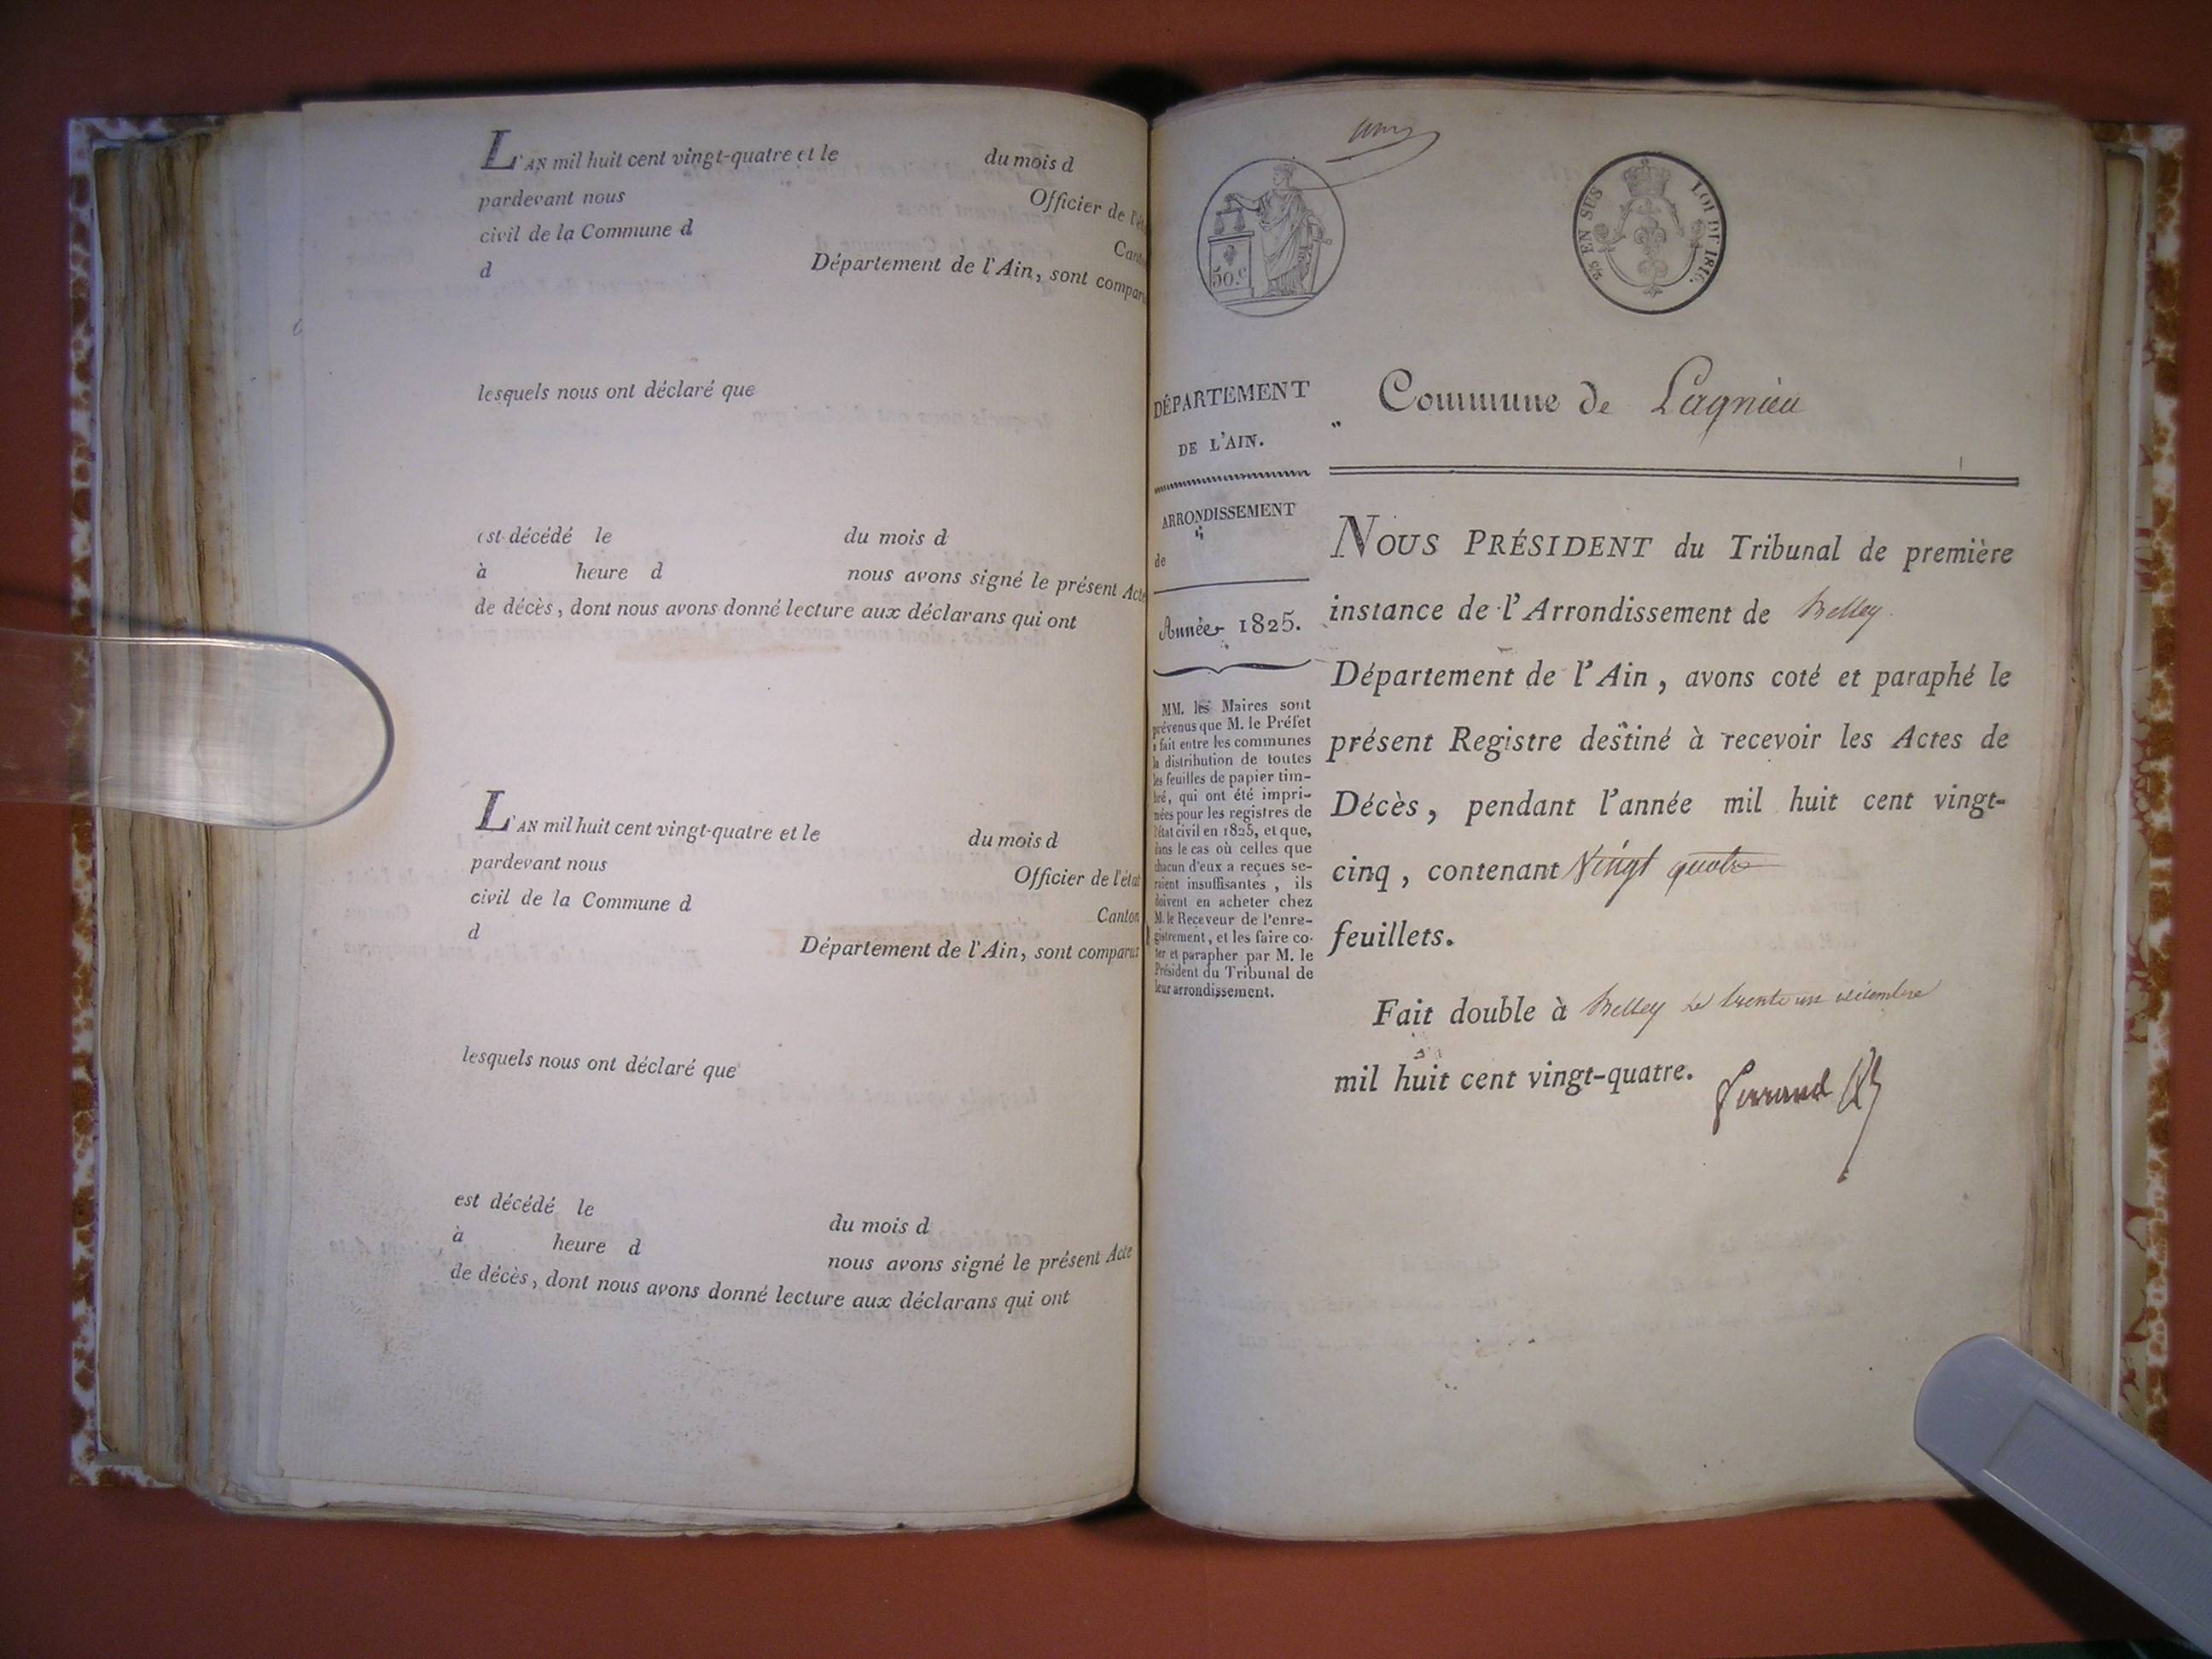 L'AN mil huit cent vingt-quatre et le du mois d
pardevant nous Officier de l'éta
civil de la Commune d Canton
d Département de l'Ain, sont compar
lesquels nous ont déclaré que
est décédé le du mois d
à heure d nous avons signé le présent Acte
de décès, dont nous avons donné lecture aux déclarans qui ont
L'AN mil huit cent vingt-quatre et le du mois d
pardevant nous Officier de l'état
civil de la Commune d Canton
d Département de l'Ain, sont comparus
lesquels nous ont déclaré que
est décédé le du mois d
à heure d nous avons signé le présent Acte
de décès, dont nous avons donné lecture aux déclarans qui ont
50.c
2/5 EN SUS LOI DE 1816.
DÉPARTEMENT
DE L'AIN.
ARRONDISSEMENT
de
Année 1825.
MM. les Maires sont
prévenus que M. le Préfet
a fait entre les communes
la distribution de toutes
les feuilles de papier tim-
bré, qui ont été impri-
mées pour les registres de
l'état civil en 1825, et que,
dans le cas où celles que
chacun d'eux a reçues se-
raient insuffisantes, ils
doivent en acheter chez
M. le Receveur de l'enre-
gistrement, et les faire co-
ter et parapher par M. le
Président du Tribunal de
leur arrondissement.
Commune de Lagnieu
NOUS PRÉSIDENT du Tribunal de première
instance de l'Arrondissement de Belley
Département de l'Ain, avons coté et paraphé le
présent Registre destiné à recevoir les Actes de
Décès, pendant l'année mil huit cent vingt-
cinq, contenant Vingt quatre
feuillets.
Fait double à Belley le trente un décembre
mil huit cent vingt-quatre.